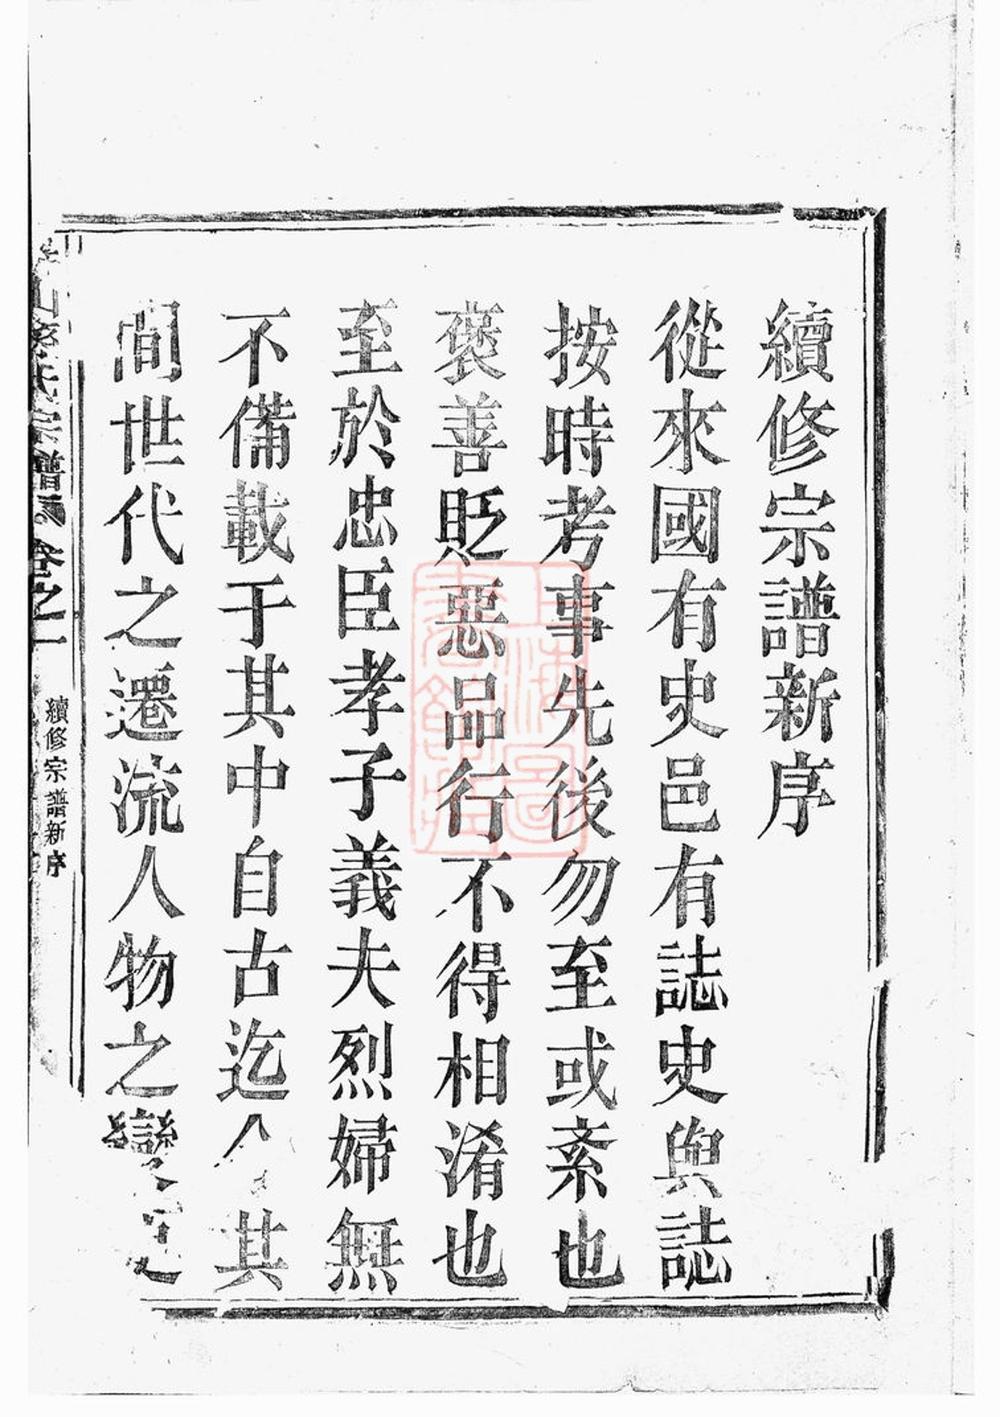 續修宗譜新序
從來國有史邑有誌史與誌
按時考事先後勿至或紊也
褒善貶惡品行不得相淆也
至於忠臣孝子義夫烈婦無
不備載于其中自古迄今其
間世代之遷流人物之變
氏宗譜 卷之一
續修宗譜新序
上海圖書館藏